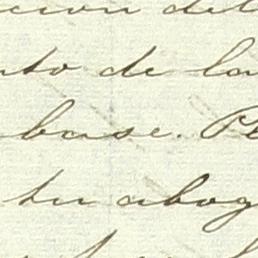 cion del
nto de la
base. Pe
tu abog